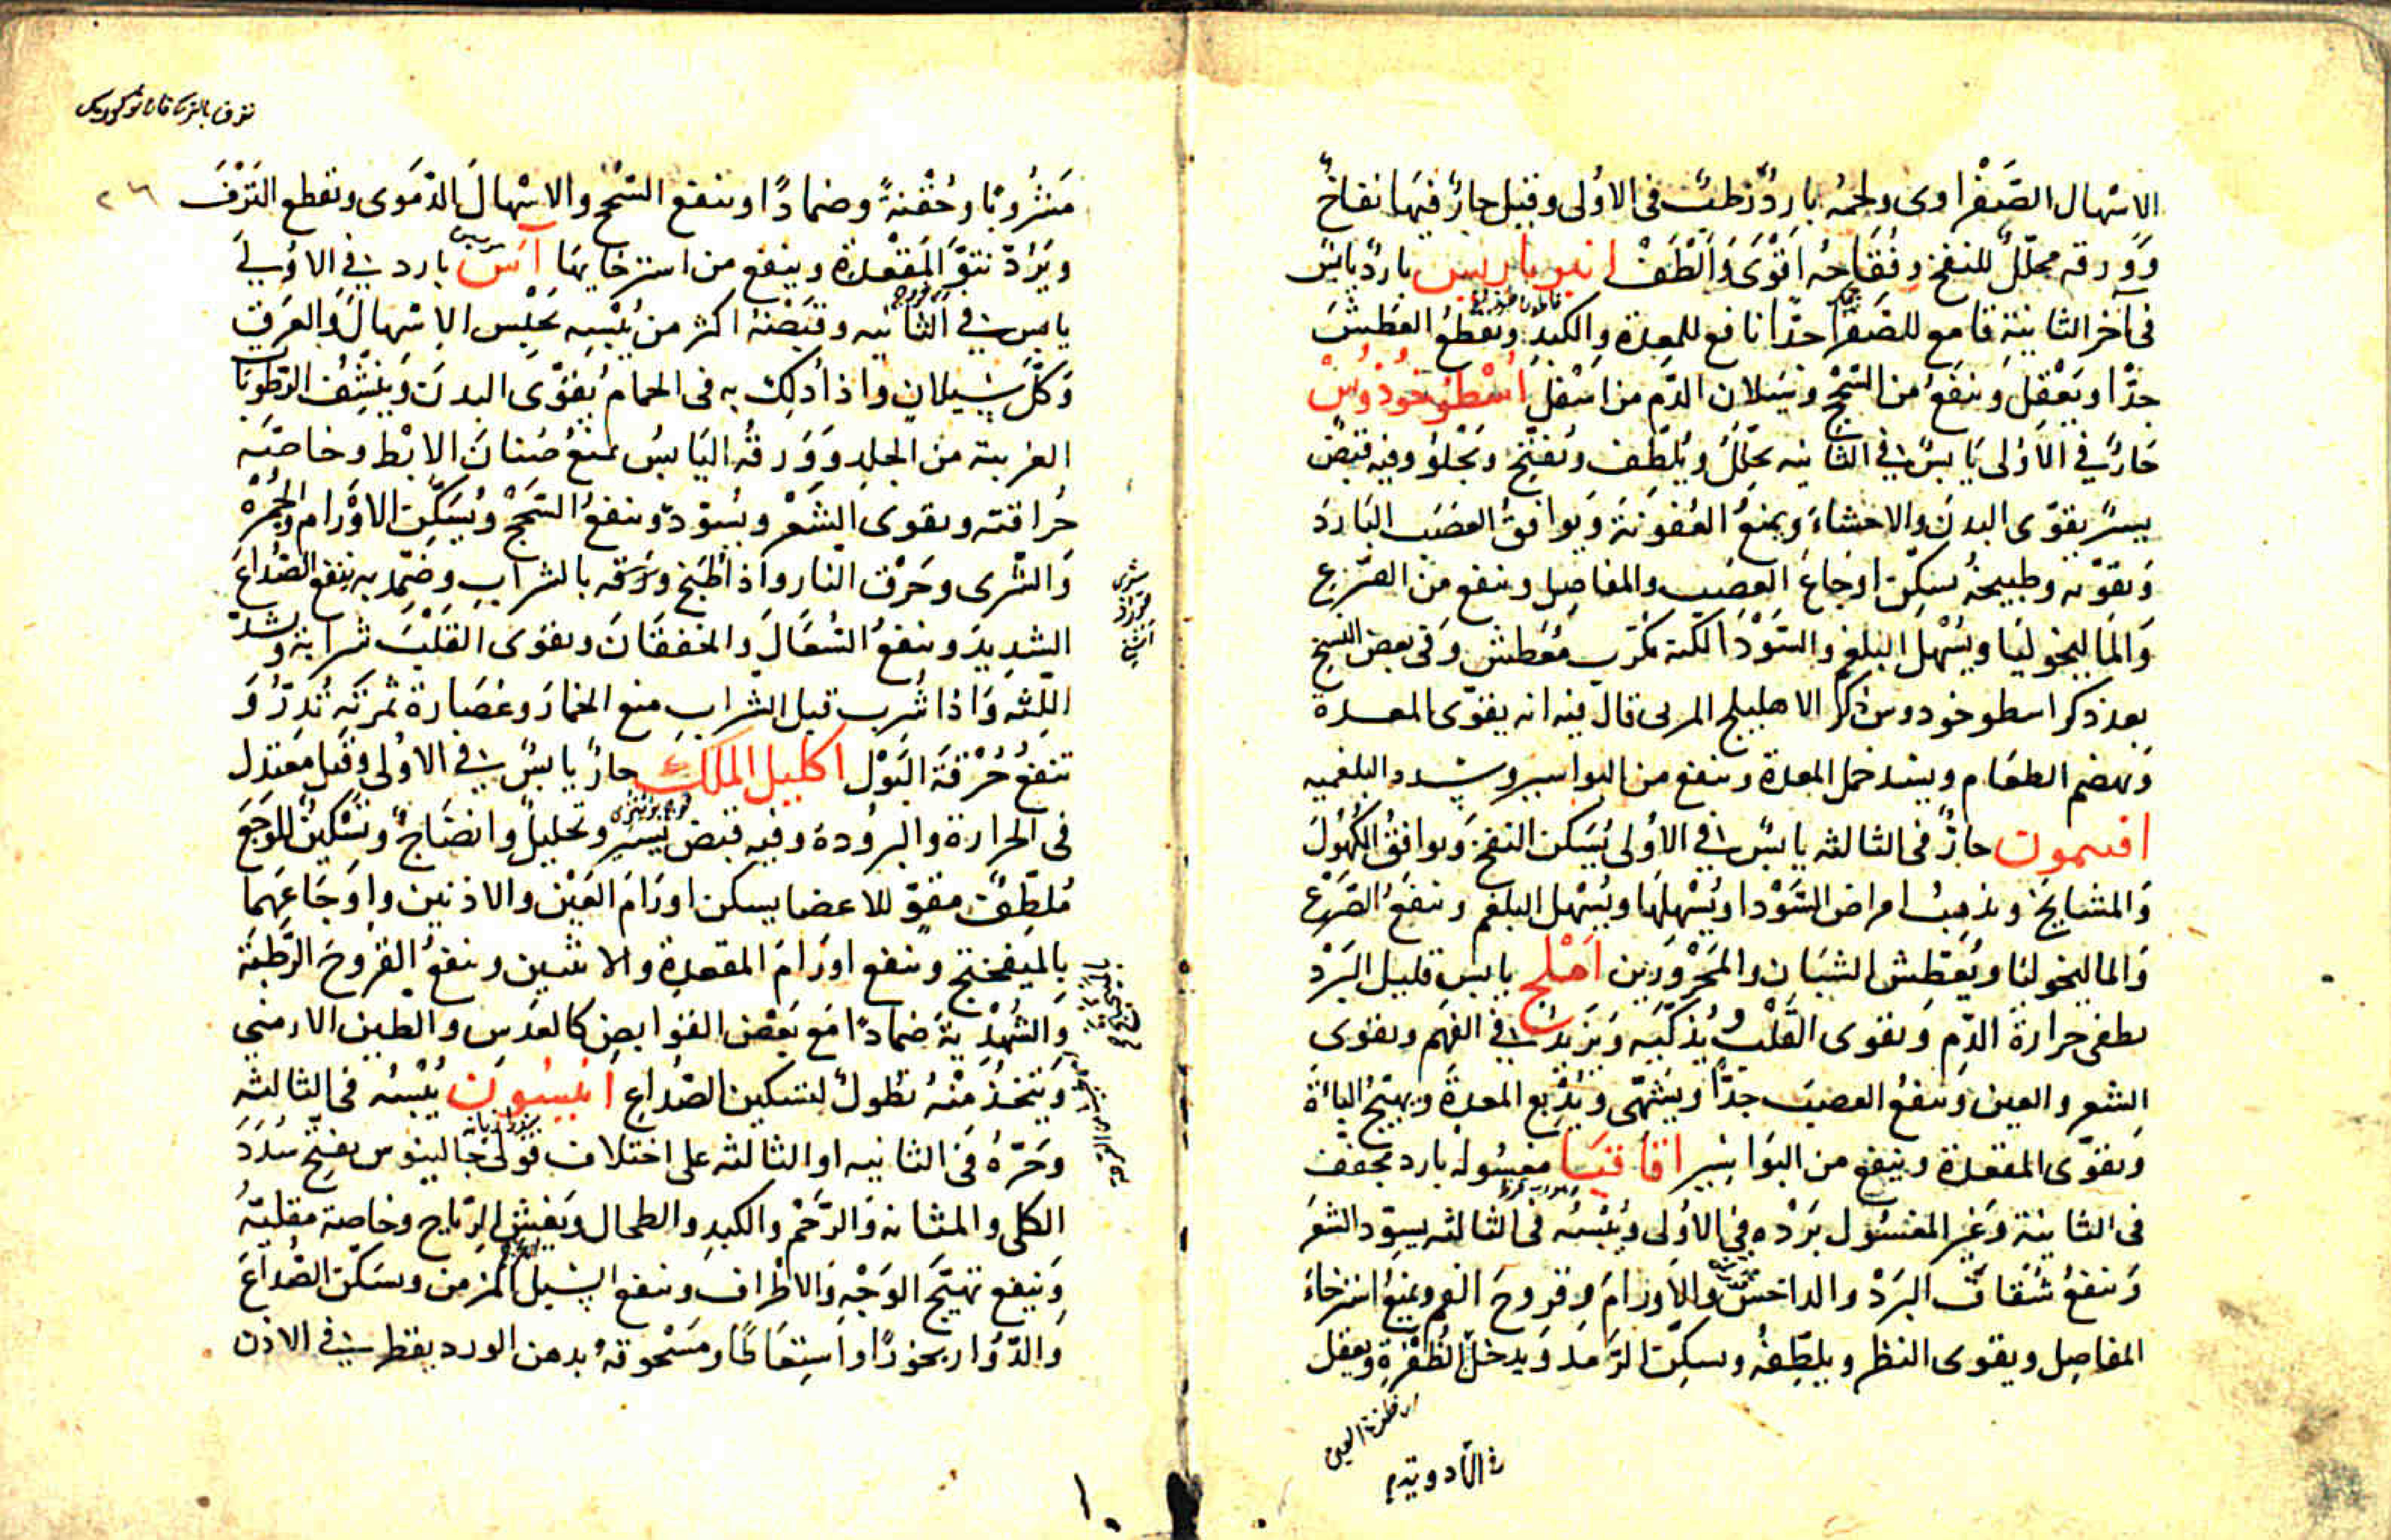 الاسهال الصفراوى ولحمه بارد رطب فى الاولى وقيل حار فيها نفاخ
وورقه محلل للنفخ وفقاحه اقوى والطف انبرباريس بارد يابس
فى آخر الثانية قامع للصفرا جدا نافع للمعدة والكبد ويقطع العطش
جدا ويعقل وينفع من السحج وسيلان الدم من اسفل اسطوخودوس
حار فى الاولى يابس فى الثانيه يحلل ويلطف ويفتح ويجلو وفيه قبض
يسير يقوى البدن والاحشاء ويمنع العفونة ويوافق العصب البارد
ويقويه وطبيخه يسكن اوجاع العصب والمفاصل وينفع من الصرع
والماليخوليا ويسهل البلغم والسودا لكنه مكرب معطش وفى بعض النسخ
بعد ذكر اسطوخودوس ذكر الاهليلج المربى قال فيه انه يقوى المعدة
ويهضم الطعام ويشد خمل المعدة وينفع من البواسير البلغميه
افيمون حار فى الثالثه يابس فى الاولى يسكن النفخ ويوافق الكهول
والمشايخ ويذهب امراض السودا ويسهلها ويسهل البلغم وينفع الصرع
والماليخوليا ويعطش الشبان والمحرورين املج يابس قليل البرد
يطفى حرارة الدم ويقوى القلب ويذكيه ويزيد فى الفهم ويقوى
الشعر والعين وينفع العصب جدا ويشهى ويدبغ المعدة ويهيج الباءة
ويقوى المقعدة وينفع من البواسير اقاقيا مغسوله بارد مجفف
فى الثانية وغير المغسول برده فى الاولى ويبسه فى الثالثه يسود الشعر
وينفع شقاق البرد والداحس والاورام وقروح الفم ويمنع استرخاء
المفاصل ويقوى النظر ويلطفه ويسكن الرمد ويدخل الظفرة ويعقل
ظفرة العين
فى الادوية
٢٦
مشروبا وحقنة وضمادا وينفع السحج والاسهال الدموى ويقطع النزف
ويرد نتو المقعدة وينفع من استرخايها آس بارد فى الاولى
يابس فى الثانيه وقبضه اكثر من يبسه يحبس الاسهال والعرق
وكل سيلان واذا دلك به فى الحمام يقوى البدن وينشف الرطوبات
الغريبة من الجلد وورقه اليابس يمنع صنان الابط وخاصته
حراقته ويقوى الشعر ويسود وينفع السحج ويسكن الاورام والحمره
والشرى وحرق النار واذا طبخ ورقه بالشراب وضمد به ينفع الصداع
الشديد وينفع السعال والخفقان ويقوى القلب شرابه ويشد
اللثه واذا شرب قبل الشراب منع الخمار وعصارة ثمرته تدر و
تنفع حرقة البول اكليل الملك حار يابس فى الاولى وقيل معتدل
فى الحرارة والبرودة وفيه قبض يسير وتحليل وانضاج وتسكين للوجع
ملطف مقو للاعضا يسكن اورام العين والاذنين واوجاعهما
بالميفختج وينفع اورام المقعدة والانثيين وينفع القروح الرطبة
والشهدية ضمادا مع بعض القوابض كالعدس والطين الارمنى
ويتخذ منه نطول لتسكين الصداع انيسون يبسه فى الثالثه
وحره فى الثانيه او الثالثه على اختلاف قولى جالينوس يفتح سدد
الكلى والمثانه والرحم والكبد والطحال ويفش الرياح وخاصة مقليه
وينفع تهيج الوجه والاطراف وينفع السبل المزمن ويسكن الصداع
والدوار بخورا واستعاطا ومسحوقه بدهن الورد يقطر فى الاذن
١٠